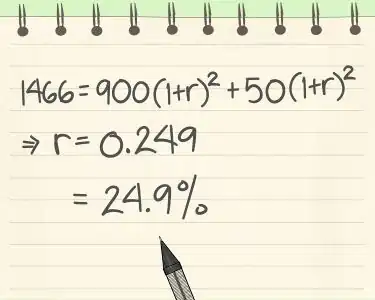 1466 = 900(1+r)² + 50(1+r)²
⇒ r = 0.249
= 24.9%